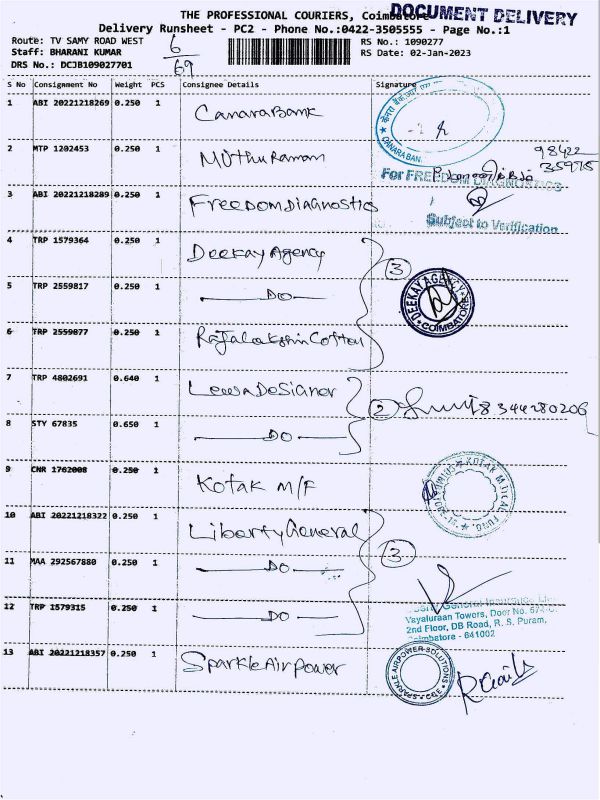 THE PROFESSIONAL COURIERS, Coimbatore
DOCUMENT DELIVERY
Delivery Runsheet - PC2 - Phone No.:0422-3505555 - Page No.:1
Route: TV SAMY ROAD WEST
Staff: BHARANI KUMAR
DRS No.: DCJB109027701
6/69
RS No.: 1090277
RS Date: 02-Jan-2023
S No Consignment No Weight PCS Consignee Details Signature
1 ABI 20221218269 0.250 1 Canara Bank
CANARA BAN
2 MTP 1202453 0.250 1 Muthu Raman
98422
35975
For FREEDOM DIAGNOSTICS
3 ABI 20221218289 0.250 1 Freedom Diagnostics
Subject to Verification
4 TRP 1579364 0.250 1 Deekay Agency
3
5 TRP 2559817 0.250 1 DO
DEEKAY AGENCY COIMBATORE
6 TRP 2559877 0.250 1 Rajalakshmi Cotton
7 TRP 4802691 0.640 1 Leewa Designer
2 8344280206
8 STY 67835 0.650 1 DO
9 CNR 1762008 0.250 1 Kotak M/F
KOTAK MUTUAL FUND
10 ABI 20221218322 0.250 1 Liberty General
3
11 MAA 292567880 0.250 1 DO
General Insurance
12 TRP 1579315 0.250 1 DO
Vayaluraan Towers, Door No.
2nd Floor, DB Road, R. S. Puram,
Coimbatore - 641002
13 ABI 20221218357 0.250 1 Sparkle Air Power
SPARKLE AIRPOWER SOLUTIONS CBE